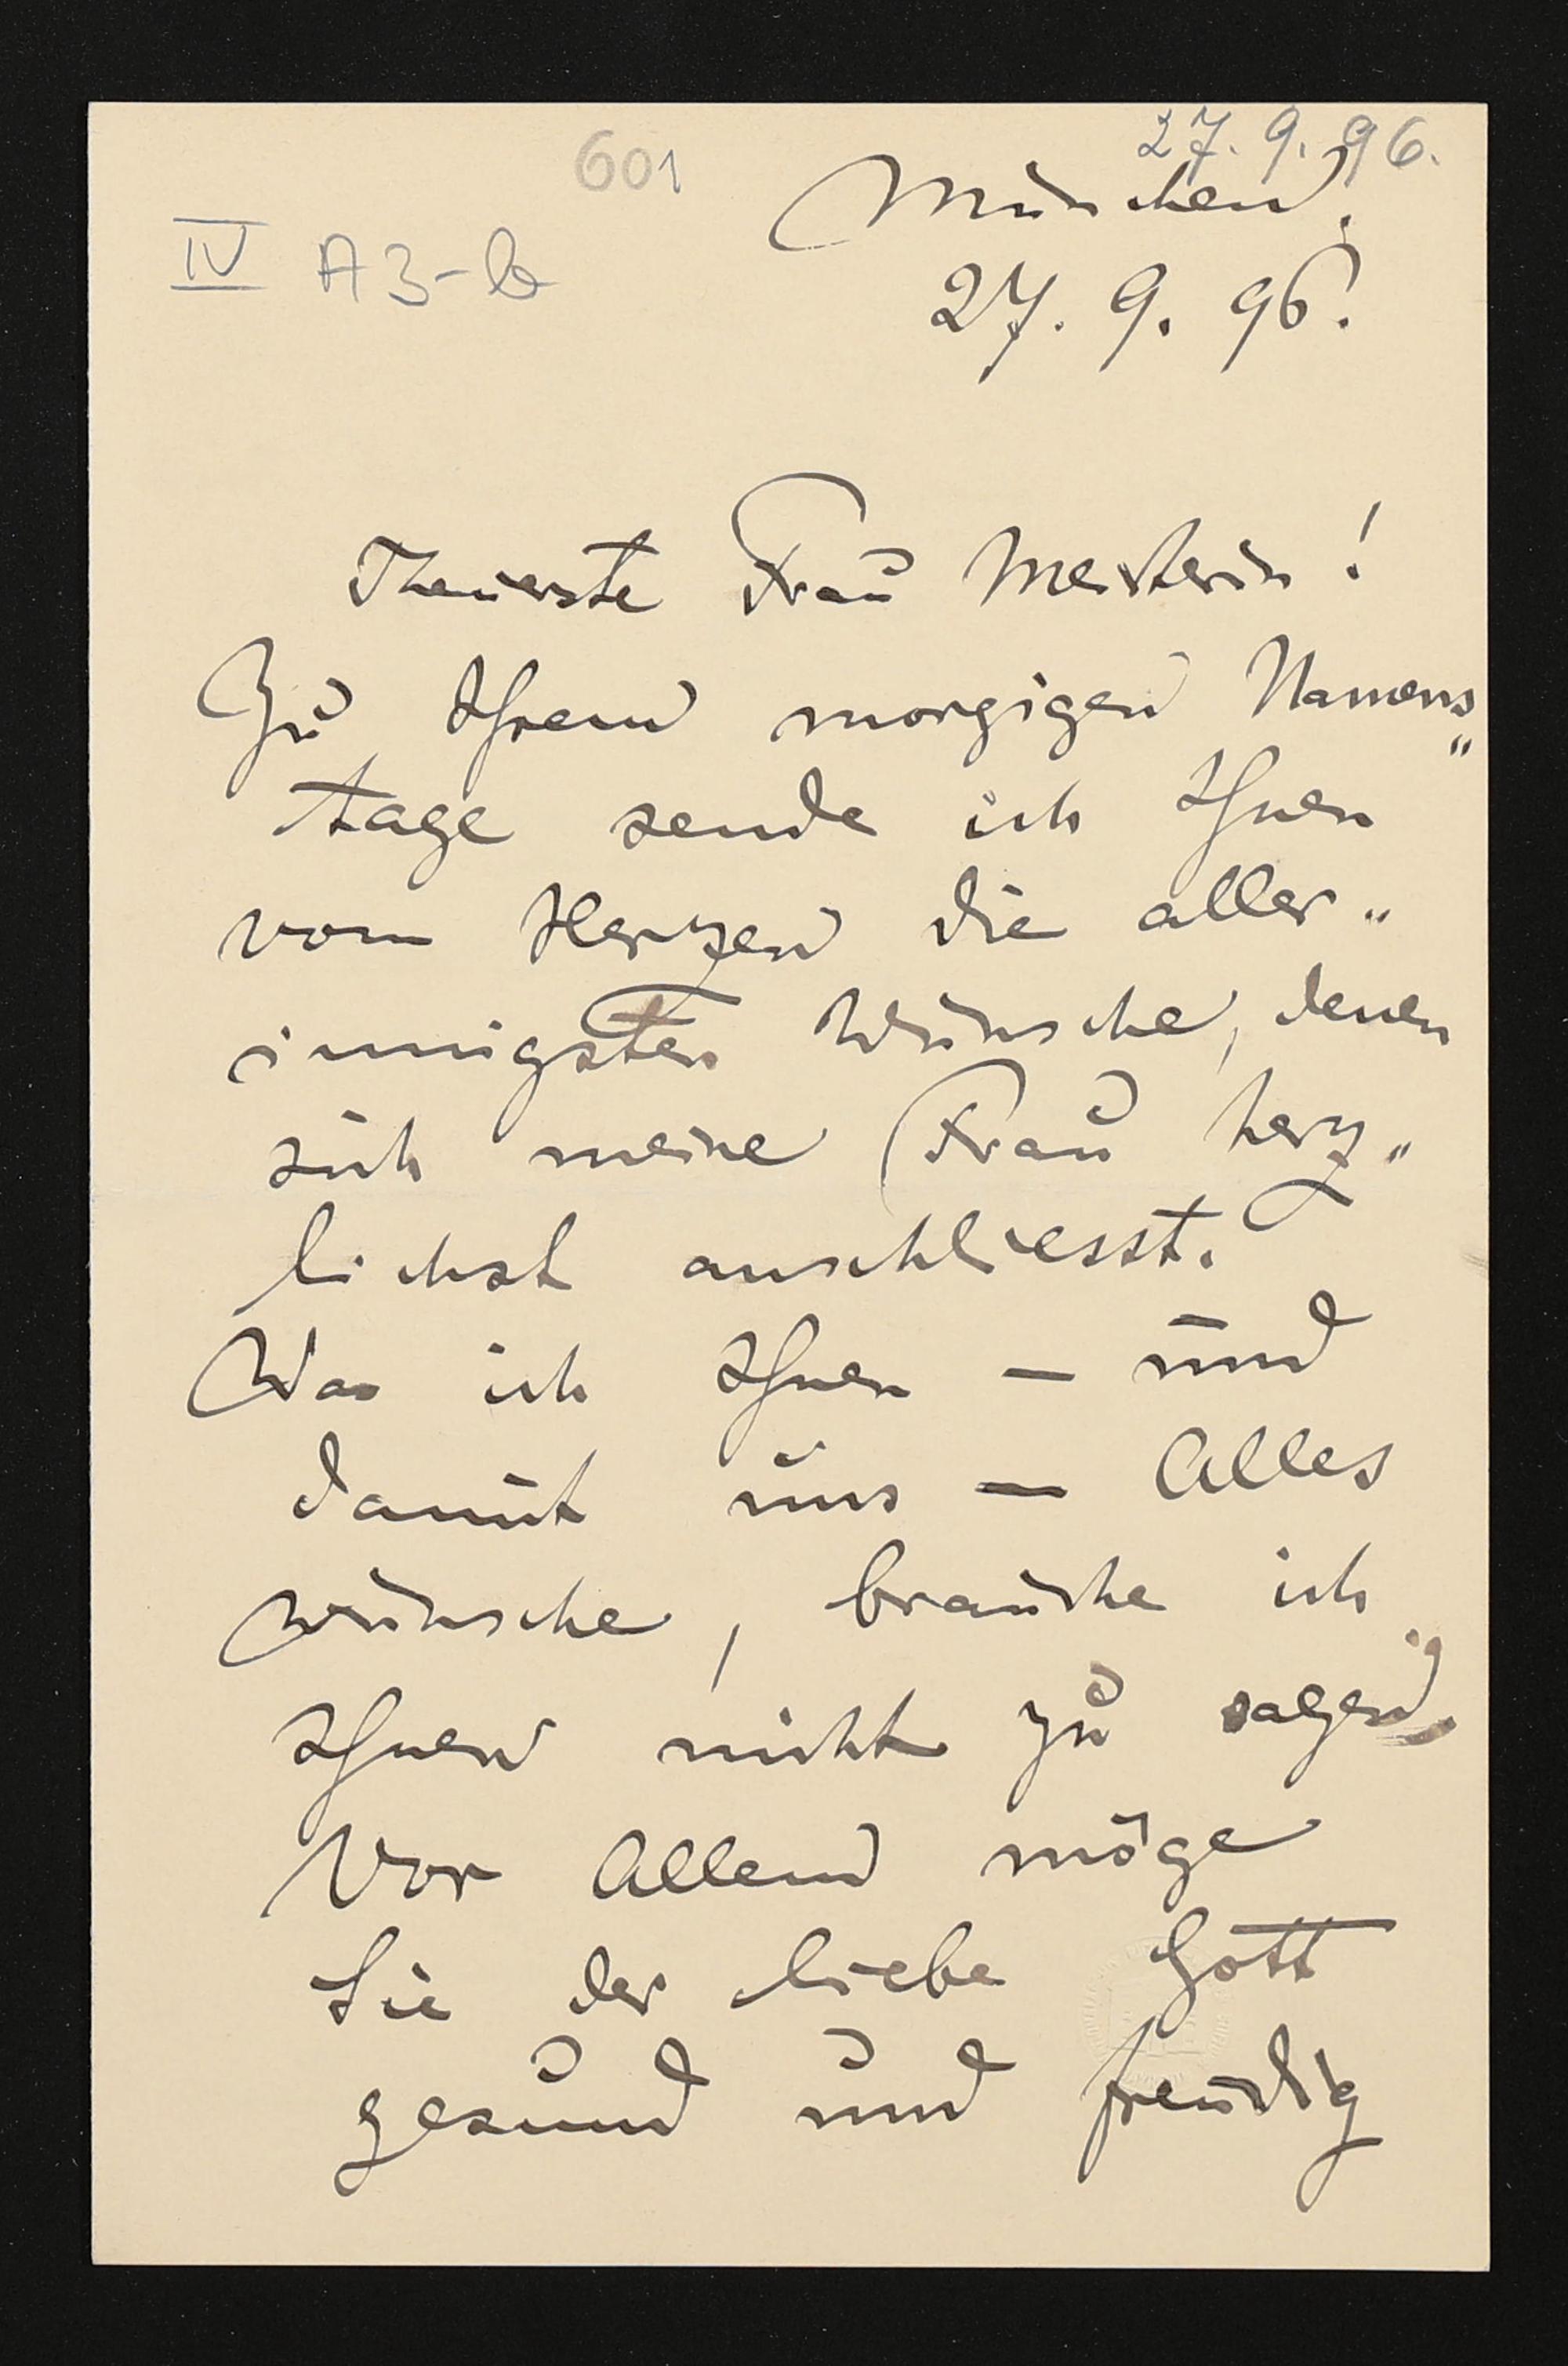 27. 9. 96.
601
München,
IV A3-b
27. 9. 96.
Theuerste Frau Meisterin!
Zu Ihrem morgigen Namens„
tage sende ich Ihnen
vom Herzen die aller„
innigsten Wünsche, denen
sich meine Frau herz„
lichst anschliesst.
Was ich Ihnen — und
damit uns — Alles
wünsche, brauche ich
Ihnen nicht zu sagen.
Vor Allem möge
Sie der liebe Gott
gesund und freudig